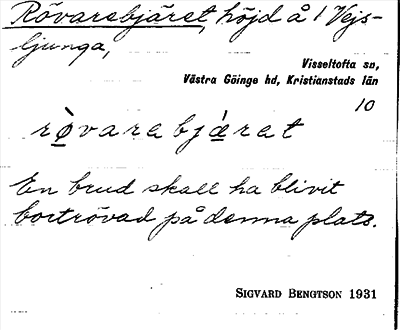 Rövarebjäret, höjd å 1 Vejs-
ljunga,
Visseltofta sn,
Västra Göinge hd, Kristianstads län
10
rø̀varebjǽret
En brud skall ha blivit
bortrövad på denna plats.
SIGVARD BENGTSON 1931